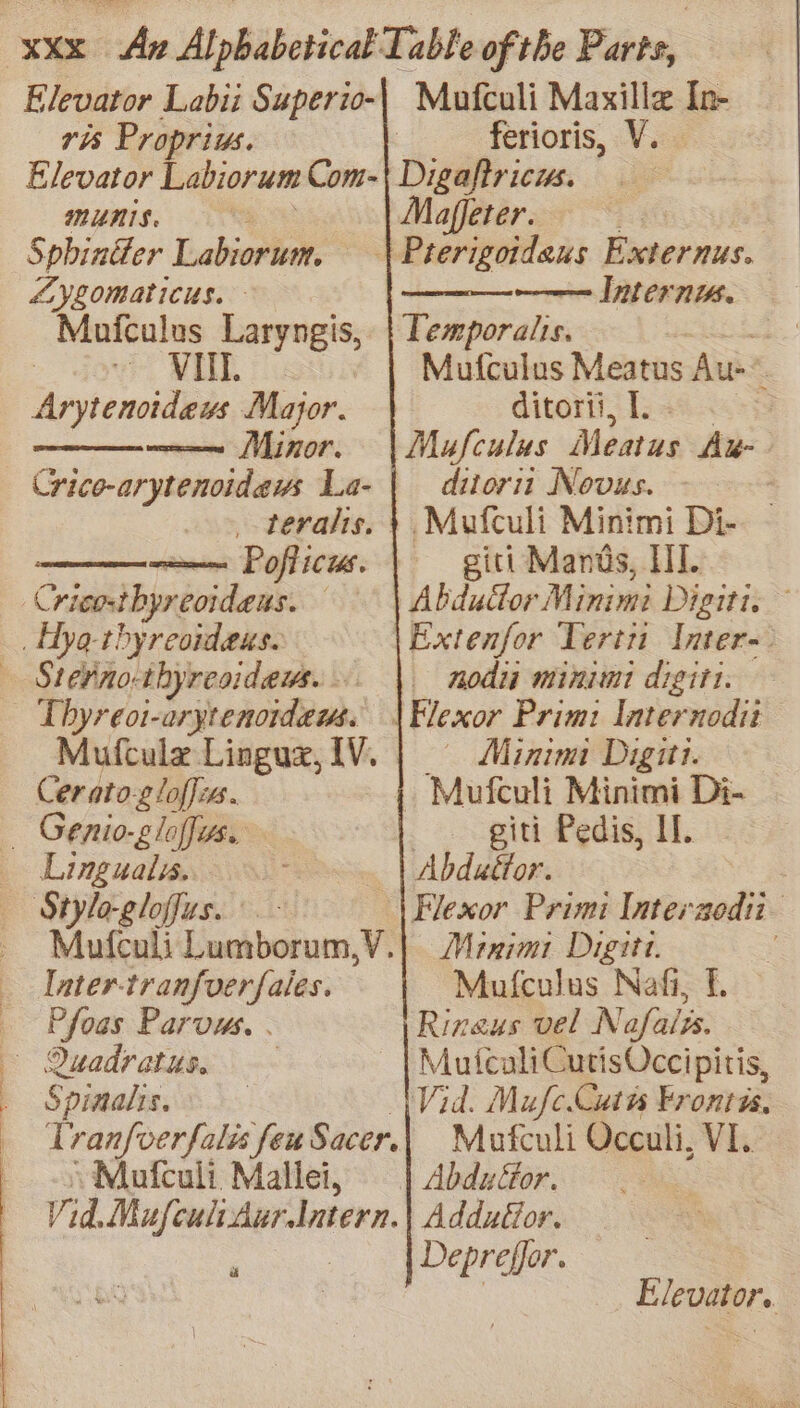 xxx An Alphabetical Table of the Parts,
Elevator Labii Superio-
ris Proprius.
Elevator Labiorum Com-
munis.
Sphincter Labiorum.
Zygomaticus.
Muſculus Laryngis,
VIII.
Arytenoidæus Major.
—— Minor.
Crico-arytenoidæus La-
teralis.
—— Poſticus.
Crico-thyreoidæus.
Hyo-thyreoidæus.
Sterno-thyreoidæus.
Thyreoi-arytenoidæus.
Muſculæ Linguæ, IV.
Cerato-gloſſus.
Genio-gloſſus.
Lingualis.
Stylo-gloſſus.
Muſculi Lumborum, V.
Inter-tranſverſales.
Pſoas Parvus.
Quadratus.
Spinalis.
Tranſverſalis ſeu Sacer.
Muſculi Mallei,
Vid. Muſculi Aur. Intern.
Muſculi Maxillæ In-
ferioris, V.
Digaſtricus.
Maſſeter.
Pterigoidæus Externus.
—— Internus.
Temporalis.
Muſculus Meatus Au-
ditorii, I.
Muſculus Meatus Au-
ditorii Novus.
Muſculi Minimi Di-
giti Manûs, III.
Abductor Minimi Digiti.
Extenſor Tertii Inter-
nodii minimi digiti.
Flexor Primi Internodii
Minimi Digiti.
Muſculi Minimi Di-
giti Pedis, II.
Abductor.
Flexor Primi Internodii
Minimi Digiti.
Muſculus Naſi, I.
Rinæus vel Naſalis.
Muſculi Cutis Occipitis,
Vid. Muſc. Cutis Frontis.
Muſculi Occuli, VI.
Abductor.
Adductor.
Depreſſor.
Elevator.